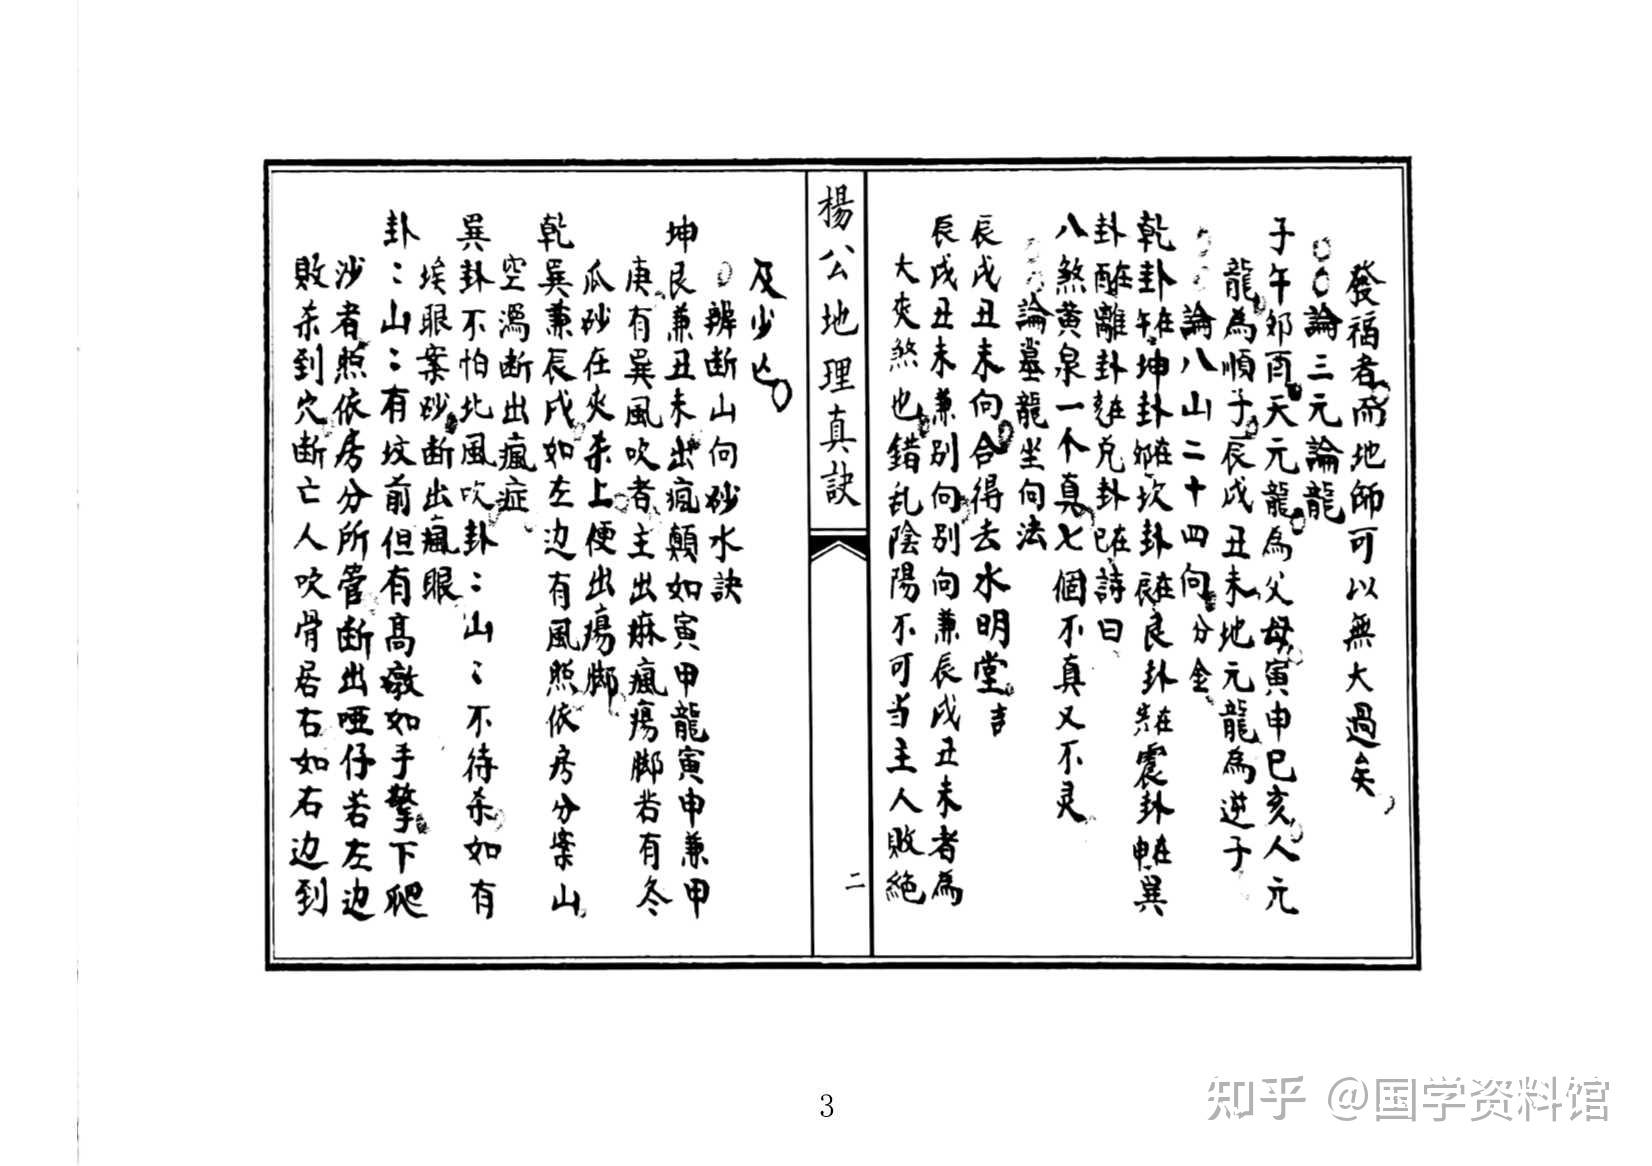 發福者而地師可以無大過矣
論三元論龍
子午卯酉天元龍為父母寅申巳亥人元
龍為順子辰戌丑未地元龍為逆子
論八山二十四向分金
乾卦在午坤卦在卯坎卦在辰艮卦在寅震卦在申巽
卦在酉離卦在亥兌卦在巳詩曰
八煞黄泉一个真七個不真又不灵
論墓龍坐向法
辰戌丑未向合得去水明堂吉
辰戌丑未兼别向别向兼辰戌丑未者為
大夾煞也錯乱陰陽不可当主人敗絶
楊公地理真訣
二
及少亡
辨断山向砂水訣
坤艮兼丑未出瘋顛如寅甲龍寅申兼甲
庚有巽風吹者主出麻瘋瘍脚若有冬
瓜砂在夾杀上便出瘍脚
乾巽兼辰戌如左边有風照依房分案山
空漏断出瘋症
巽卦不怕北風吹卦：山：不待杀如有
埃眼案砂断出瘋眼
卦：山：有坟前但有高墩如手擎下爬
沙者照依房分所管断出啞仔若左边
敗杀到穴断亡人吹骨居右如右边到
3
知乎 @国学资料馆